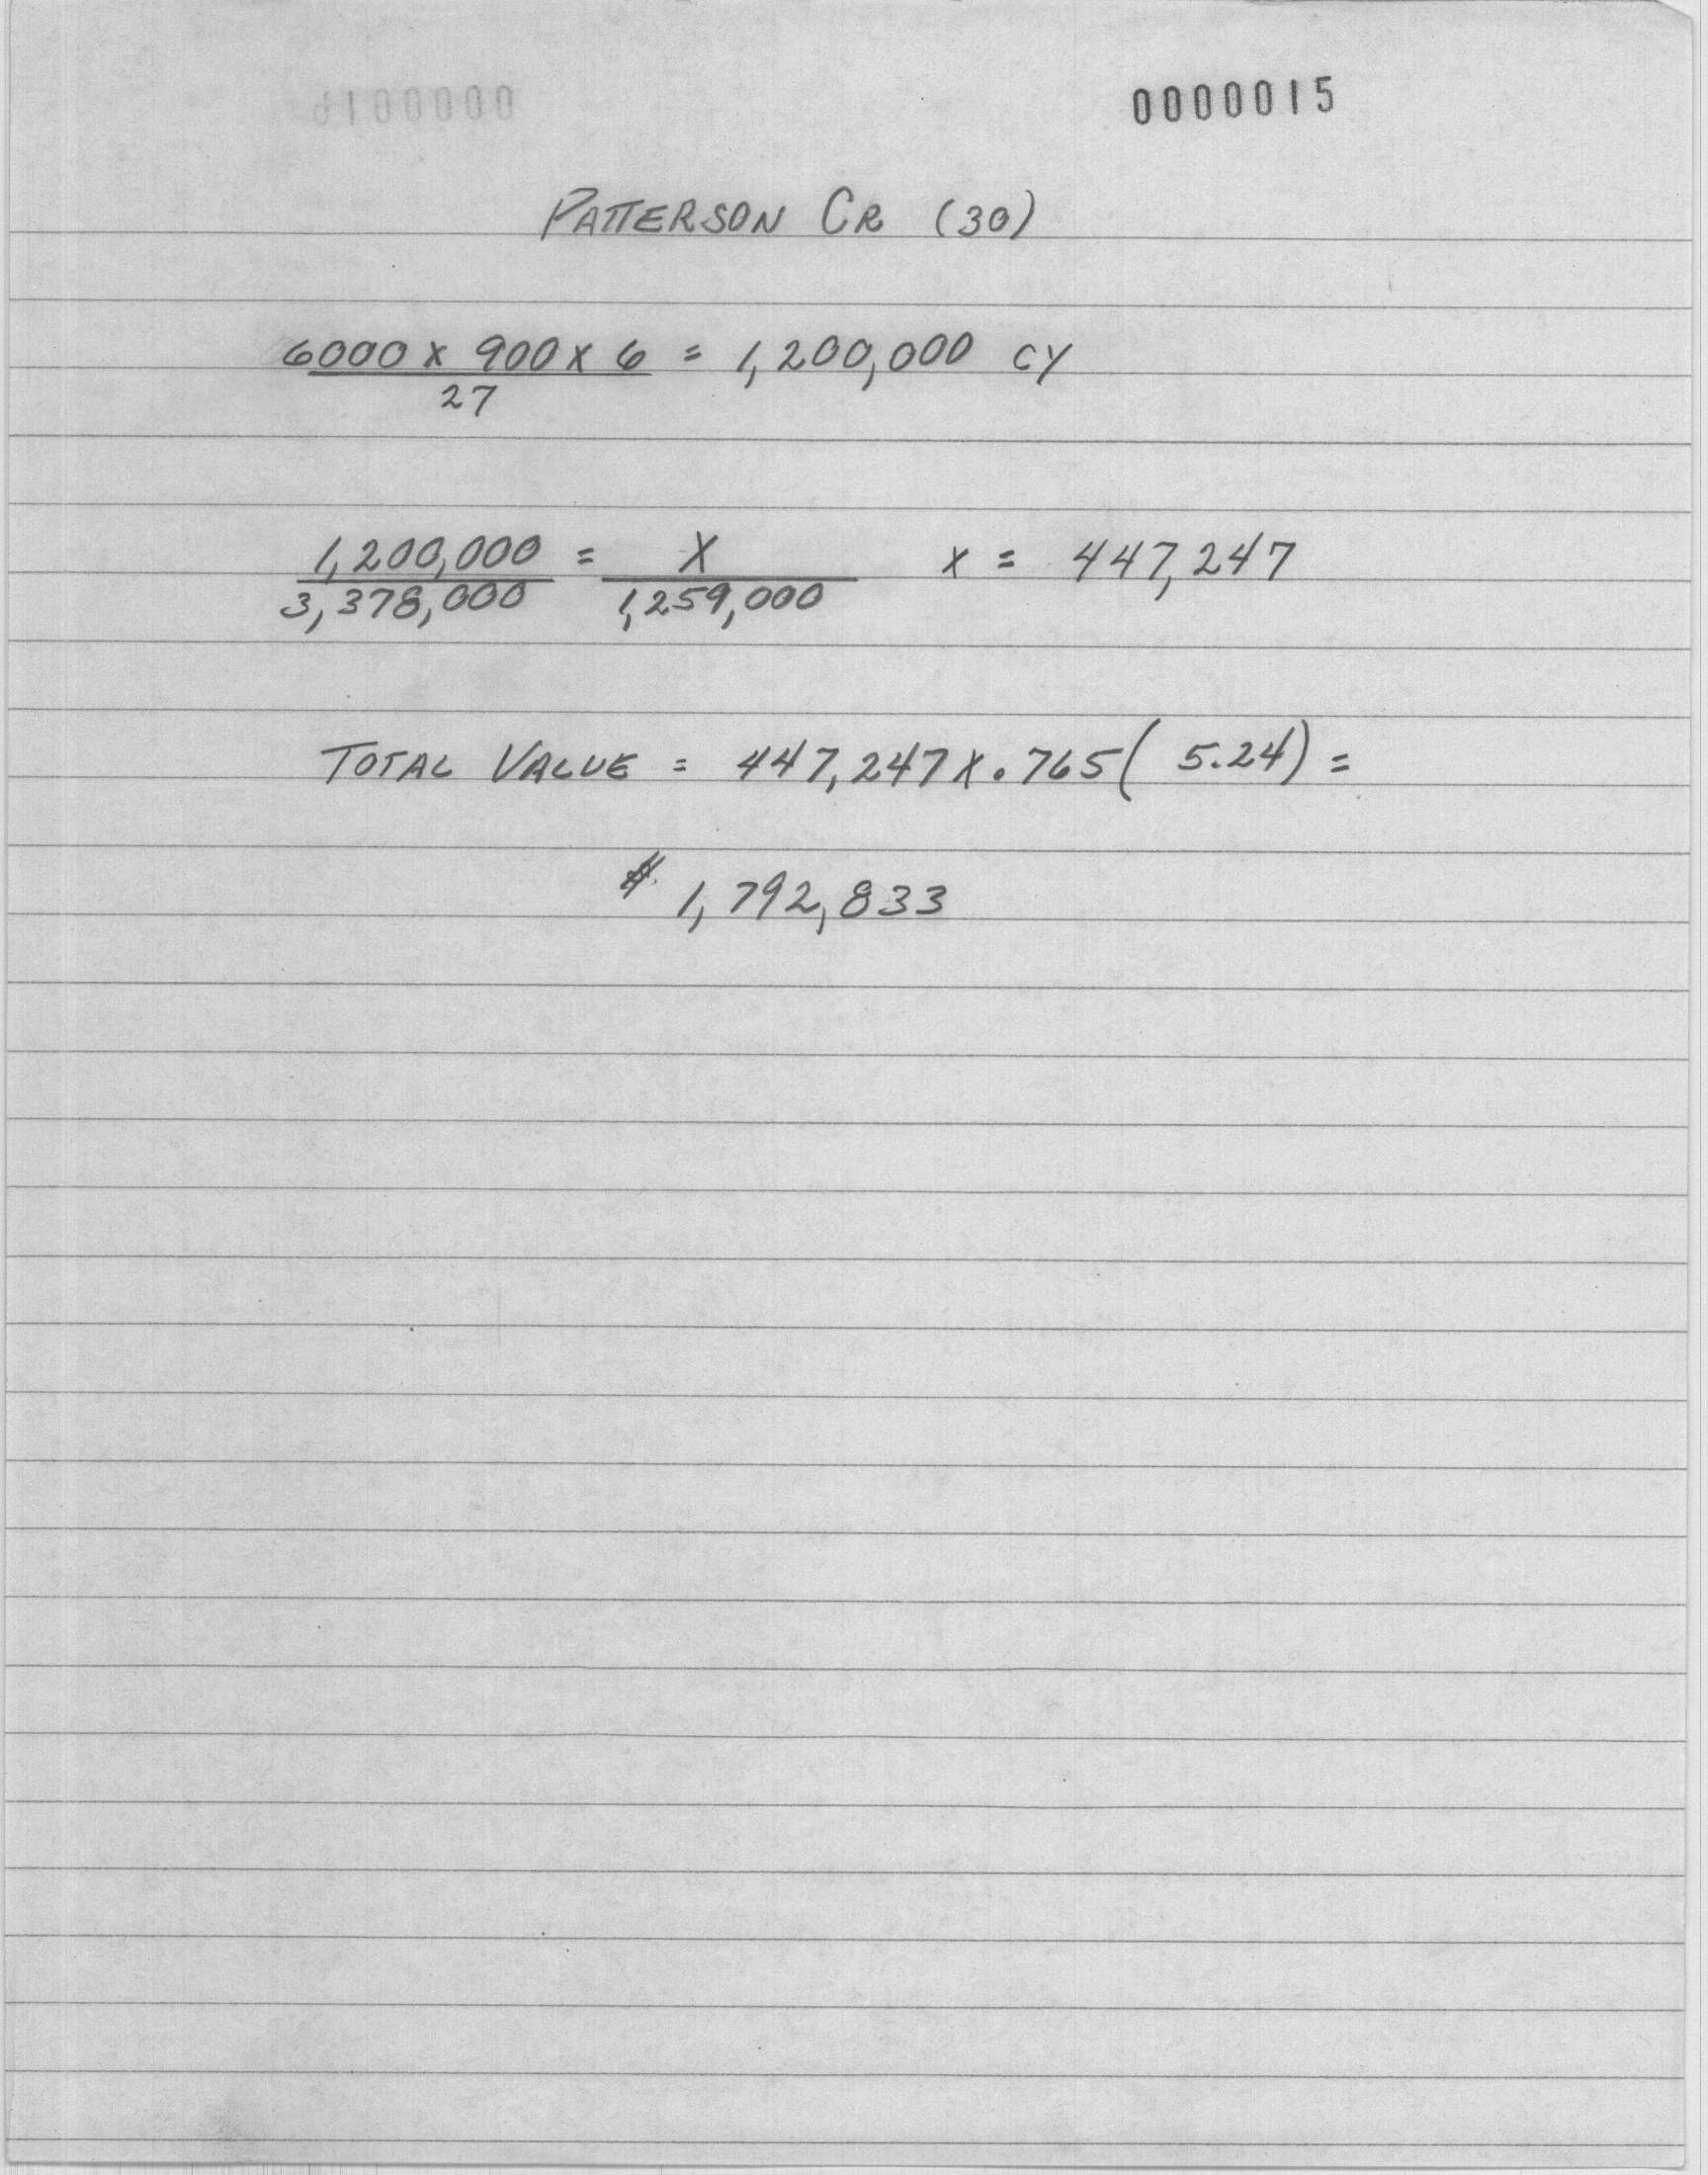 0000015
PATTERSON CR (30)
6000 x 900 x 6 = 1,200,000 CY
27
1,200,000 = X x = 447,247
3,378,000 1,259,000
TOTAL VALUE = 447,247 x .765 ( 5.24) =
$ 1,792,833